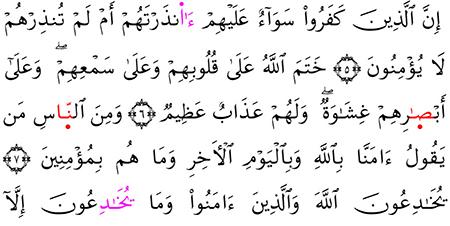 إِنَّ ٱلَّذِينَ كَفَرُواْ سَوَآءٌ عَلَيۡهِمۡ ءَا۬نذَرۡتَهُمۡ أَمۡ لَمۡ تُنذِرۡهُمۡ
لَا يُؤۡمِنُونَ ۝٥ خَتَمَ ٱللَّهُ عَلَىٰ قُلُوبِهِمۡ وَعَلَىٰ سَمۡعِهِمۡۖ وَعَلَىٰٓ
أَبۡصَٰرِهِمۡ غِشَٰوَةٞۖ وَلَهُمۡ عَذَابٌ عَظِيمٞ ۝٦ وَمِنَ ٱلنَّاسِ مَن
يَقُولُ ءَامَنَّا بِٱللَّهِ وَبِٱلۡيَوۡمِ ٱلۡأٓخِرِ وَمَا هُم بِمُؤۡمِنِينَ ۝٧
يُخَٰدِعُونَ ٱللَّهَ وَٱلَّذِينَ ءَامَنُواْ وَمَا يُخَٰدِعُونَ إِلَّآ